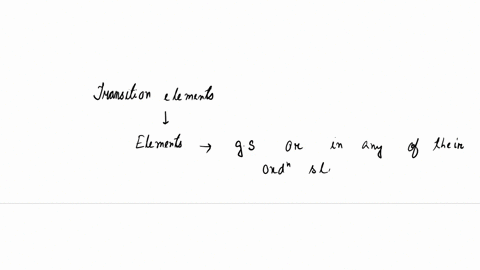 Transition elements
↓
Elements → g.s or in any of their
oxdⁿ st.